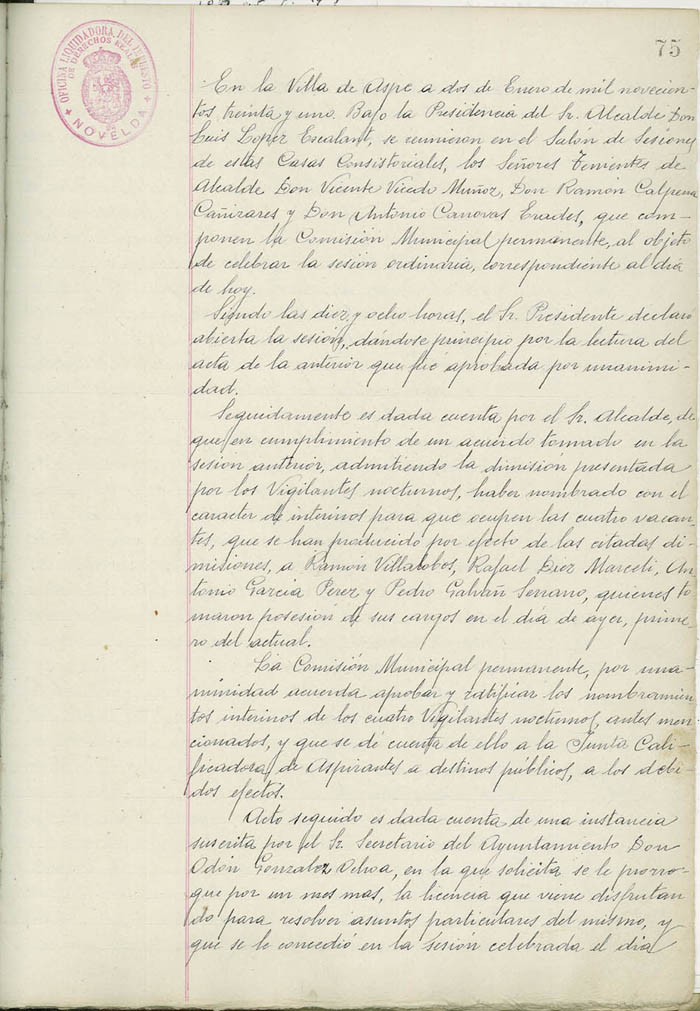 75
OFICINA LIQUIDADORA DEL IMPUESTO
DE DERECHOS REALES
NOVELDA
En la Villa de Aspe a dos de Enero de mil novecien-
tos treinta y uno. Bajo la Presidencia del Sr. Alcalde Don
Luis Lopez Escalant, se reunieron en el Salón de Sesiones
de estas Casas Consistoriales, los Señores Tenientes de
Alcalde Don Vicente Vicedo Muñoz, Don Ramón Calpena
Cañizares y Don Antonio Canovas Erades, que com-
ponen la Comisión Municipal permanente, al objeto
de celebrar la sesión ordinaria, correspondiente al dia
de hoy.
Siendo las diez y ocho horas, el Sr. Presidente declaró
abierta la sesión, dándose principio por la lectura del
acta de la anterior que fué aprobada por unanimi-
dad.
Seguidamente es dada cuenta por el Sr. Alcalde, de
que en cumplimiento de un acuerdo tomado en la
sesión anterior, admitiendo la dimisión presentada
por los Vigilantes nocturnos, haber nombrado con el
caracter de interinos para que ocupen las cuatro vacan-
tes, que se han producido por efecto de las citadas di-
misiones, a Ramón Villalobos, Rafael Diez Marceli, An-
tonio Garcia Perez y Pedro Galvañ Serrano, quienes to-
maron posesión de sus cargos en el dia de ayer, prime-
ro del actual.
La Comisión Municipal permanente, por una-
minidad acuerda aprobar y ratificar los nombramien-
tos interinos de los cuatro Vigilantes nocturnos, antes men-
cionados, y que se dé cuenta de ello a la Junta Cali-
ficadora de Aspirantes a destinos públicos, a los debi-
dos efectos.
Acto seguido es dada cuenta de una instancia
suscrita por el Sr. Secretario del Ayuntamiento Don
Odón Gonzalez Ochoa, en la que solicita se le prorro-
gue por un mes mas, la licencia que viene disfrutan
do para resolver asuntos particulares del mismo, y
que se le concedió en la sesión celebrada el dia